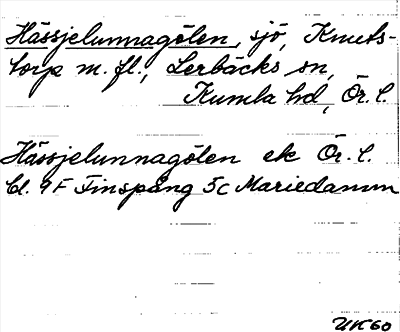 Hässjelunnagölen, sjö, Knuts-
torp m.fl., Lerbäcks sn,
Kumla hd, Ör. l.
Hässjelunnagölen ek Ör. l.
bl. 9F Finspång 5c Mariedamm
UK60